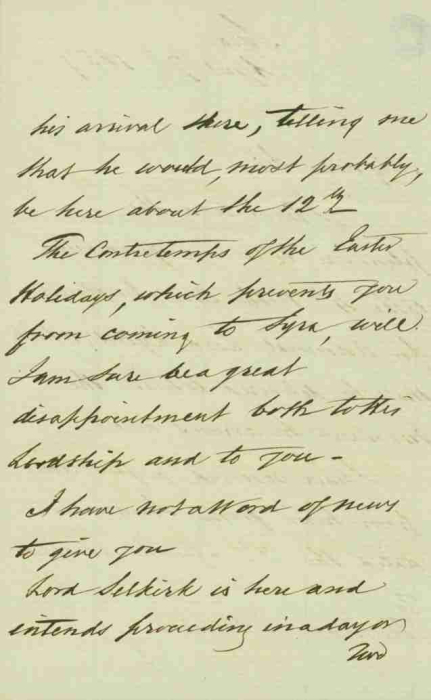 his arrival there, telling me
that he would, most probably,
be here about the 12th
The Contretemps of the Easter
Holidays, which prevents you
from coming to Syra, will
I am sure be a great
disappointment both to His
Lordship and to you -
I have not a Word of news
to give you
Lord Selkirk is here and
intends proceeding in a day or
Two